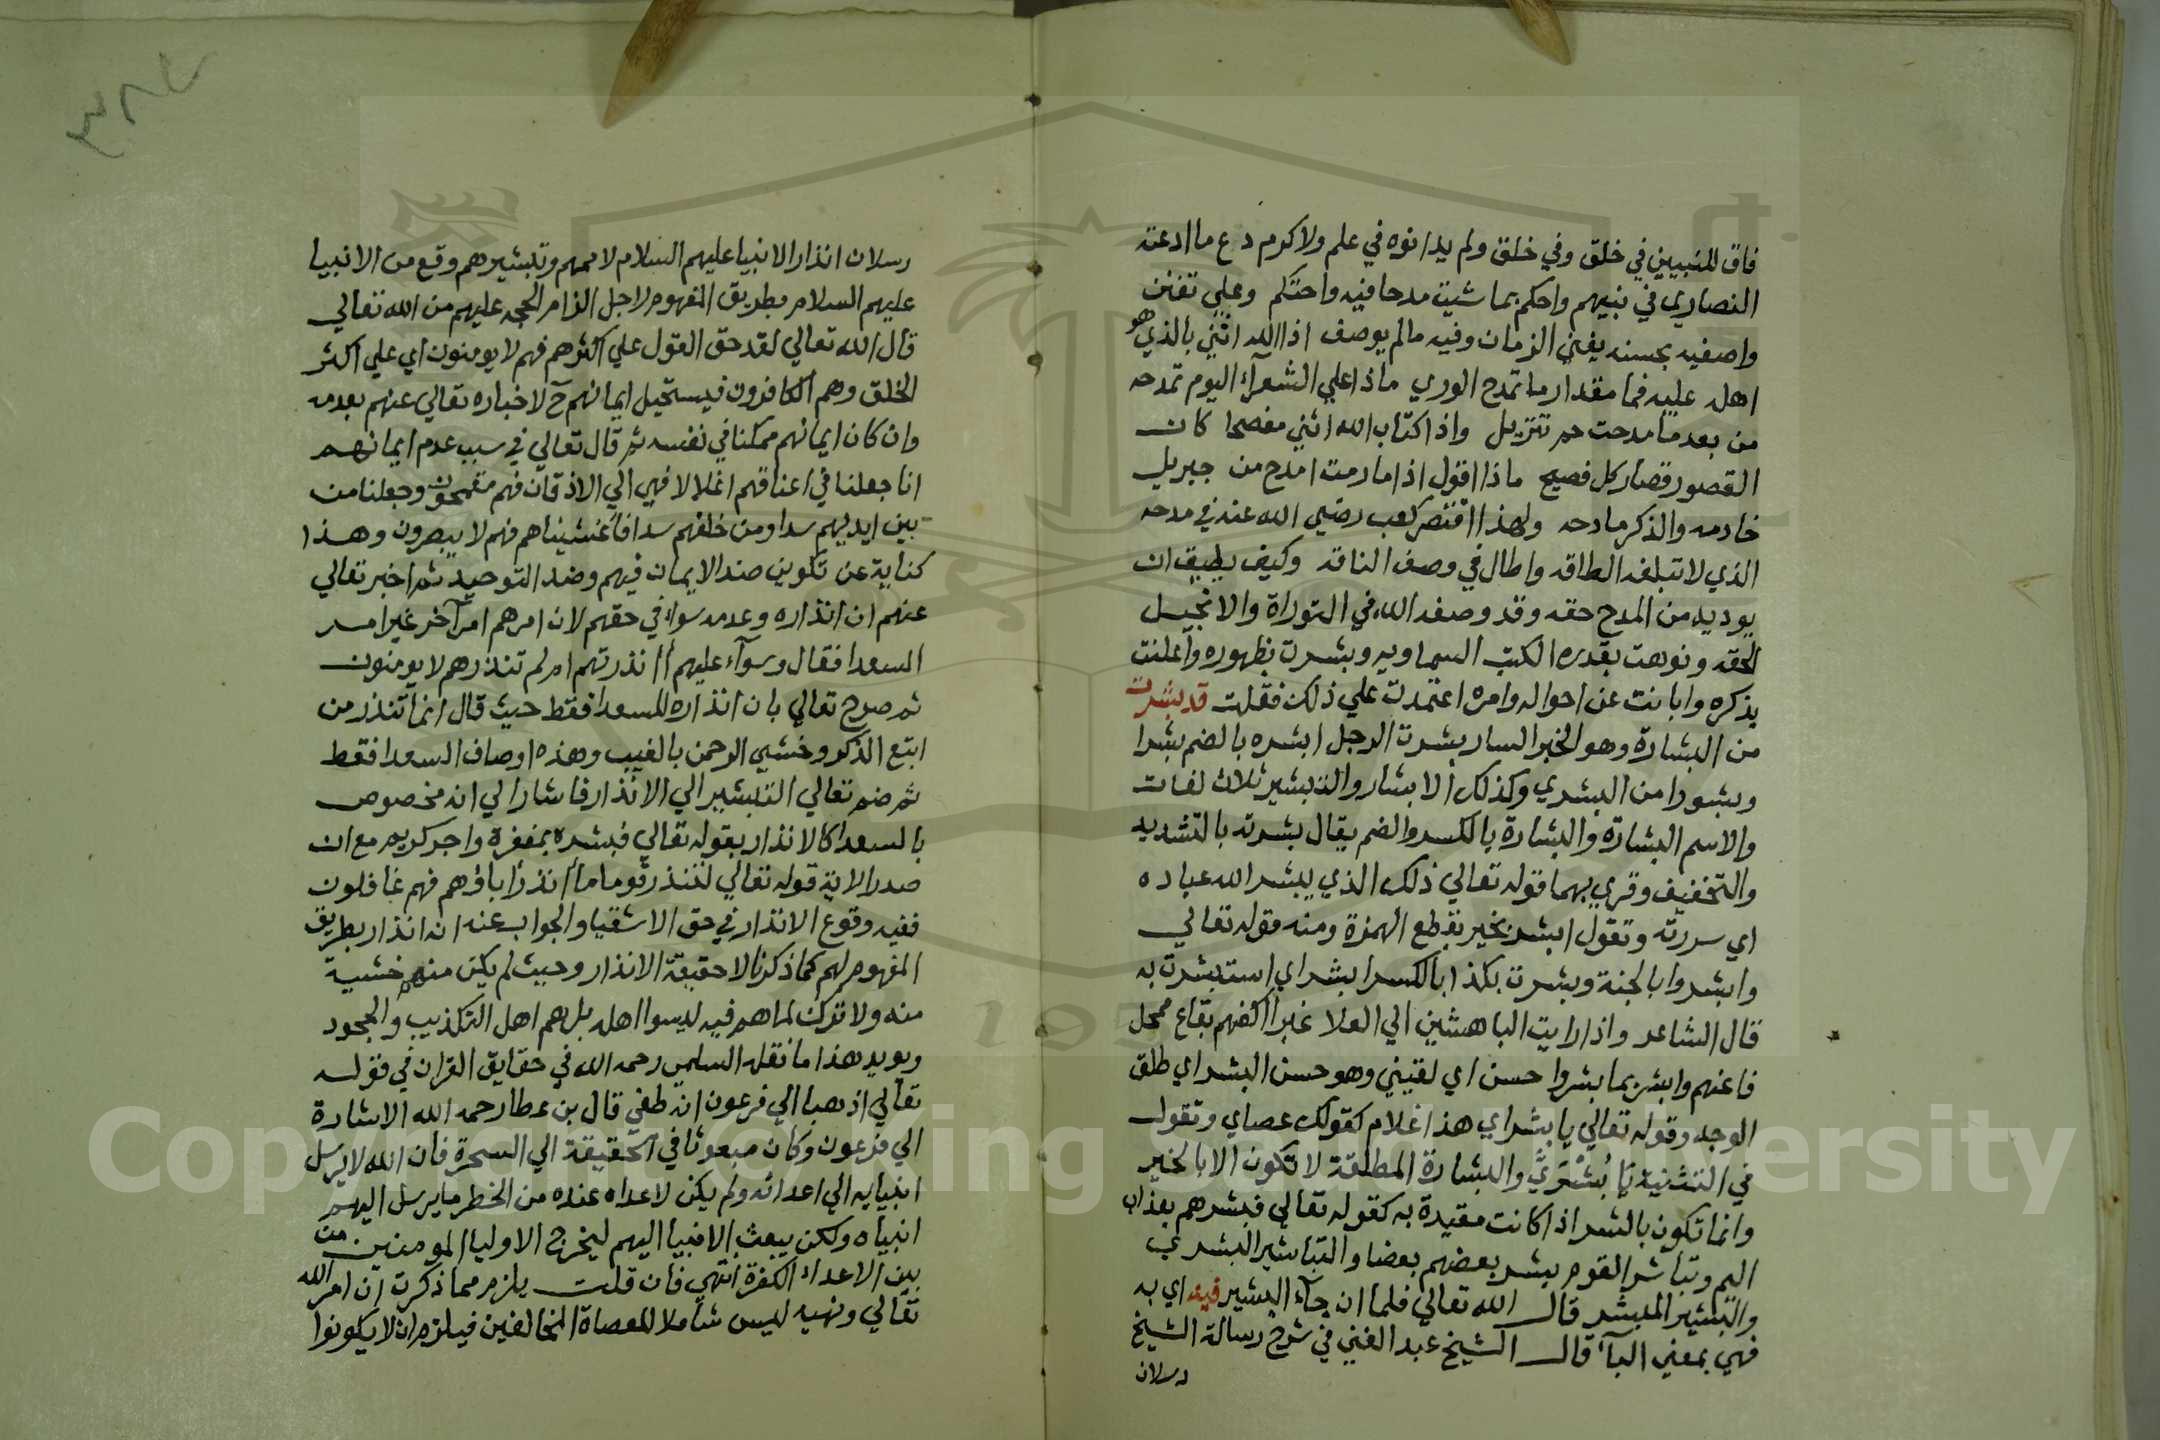 فاق النبيين في خلق وفي خلق ولم يدانوه في علم ولا كرم دع ما ادعته
النصاري في نبيهم واحكم بما شيت مدحا فيه واحتكم وعلي تفنن
واصفيه بحسنه يفني الزمان وفيه مالم يوصف اذا الله اثني بالذي هو
اهله عليه فما مقدار ما تمدح الوري ماذا علي الشعرآء اليوم تمدحه
من بعد ما مدحت حم تنزيل واذا كتاب الله اثني مفصحا كان
القصور قصار كل فصيح ماذا اقول اذا ما رمت امدح من جبريل
خادمه والذكر مادحه ولهذا اقتصر كعب رضي الله عنه في مدحه
الذي لا تبلغه الطاقه واطال في وصف الناقه وكيف يطيق ان
يوديه من المدح حقه وقد وصفه الله في التوراة والانجيل
لحقه ونوهت بقدره الكتب السماويه وبشرت بظهوره واعلنت
بذكره وابانت عن احواله وامره اعتمدت علي ذلك فقلت قد بشرت
من البشارة وهو الخبر السار بشرت الرجل ابشره بالضم بشرا
وبشورا من البشري وكذلك الابشار والتبشير ثلاث لغات
والاسم البشارة والبشارة بالكسر والضم يقال بشرته بالتشديد
والتخفيف وقري بهما قوله تعالي ذلك الذي يبشر الله عباده
اي سررته وتقول ابشر بخير بقطع الهمزة ومنه قوله تعالي
وابشروا بالجنة وبشرت بكذا بالكسر ابشر اي استبشرت به
قال الشاعر واذا رايت الباهشين الي العلا غبرا اكفهم بقاع ممحل
فاعنهم وابشر بما بشروا حسن اي لقيني وهو حسن البشر اي طلق
الوجه وقوله تعالي يا بشراي هذا غلام كقولك عصاي وتقول
في التثنية يا بُشْرَيَيَّ والبشارة المطلقة لا تكون الا بالخير
وانما تكون بالشر اذا كانت مقيدة به كقوله تعالي فبشرهم بعذاب
اليم وتباشر القوم بشر بعضهم بعضا والتباشير البشري
والبشير المبشر قال الله تعالي فلما ان جآء البشير فيه اي به
فهي بمعني البآء قال الشيخ عبد الغني في شرح رسالة الشيخ
رسلان
رسلان انذار الانبيا عليهم السلام لاممهم وتبشيرهم وقع من الانبيا
عليهم السلام بطريق المفهوم لاجل الزام الحجه عليهم من الله تعالي
قال الله تعالي لقد حق القول علي اكثرهم فهم لا يومنون اي علي اكثر
الخلق وهم الكافرون فيستحيل ايمانهم ح لاخباره تعالي عنهم بعدمه
وان كان ايمانهم ممكنا في نفسه ثم قال تعالي في سبب عدم ايمانهم
انا جعلنا في اعناقهم اغلالا فهي الي الاذقان فهم مقمحون وجعلنا من
بين ايديهم سدا ومن خلفهم سدا فاغشيناهم فهم لا يبصرون وهذا
كناية عن تكوين ضد الايمان فيهم وضد التوحيد ثم اخبر تعالي
عنهم ان انذاره وعدمه سواء في حقهم لان امرهم امر آخر غير امر
السعدا فقال وسوآء عليهم أانذرتهم ام لم تنذرهم لا يومنون
ثم صرح تعالي بان انذاره للسعدا فقط حيث قال انما تنذر من
اتبع الذكر وخشي الرحمن بالغيب وهذه اوصاف السعدا فقط
ثم ضم تعالي التبشير الي الانذار فاشار الي انه مخصوص
بالسعدا كالانذار بقوله تعالي فبشره بمغفرة واجر كريم مع ان
صدر الاية قوله تعالي لتنذر قوما ما أنذر أباؤهم فهم غافلون
ففيه وقوع الانذار في حق الاشقيا والجواب عنه انه انذار بطريق
المفهوم لهم كما ذكرنا لا حقيقة الانذار وحيث لم يكن منهم خشية
منه ولا ترك لما هم فيه ليسوا اهله بل هم اهل التكذيب والجحود
ويويد هذا ما نقله السلمي رحمه الله في حقايق القران في قوله
تعالي اذهبا الي فرعون انه طغي قال بن عطا رحمه الله الاشارة
الي فرعون وكان مبعوثا في الحقيقة الي السحرة فان الله لا يرسل
انبيايه الي اعدائه ولم يكن لاعداه عنده من الخطر ما يرسل اليهم
انبياه ولكن يبعث الانبيا اليهم ليخرج الاوليا المومنين من
بين الاعداء الكفرة انتهي فان قلت يلزم مما ذكرت ان امر الله
تعالي ونهيه ليس شاملا للعصاة المخالفين فيلزم ان لا يكونوا
Copyright © King Saud University